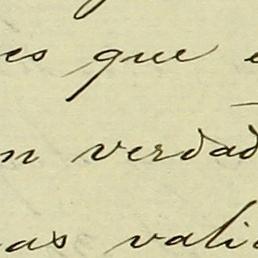 es que e
n verdad
as vali